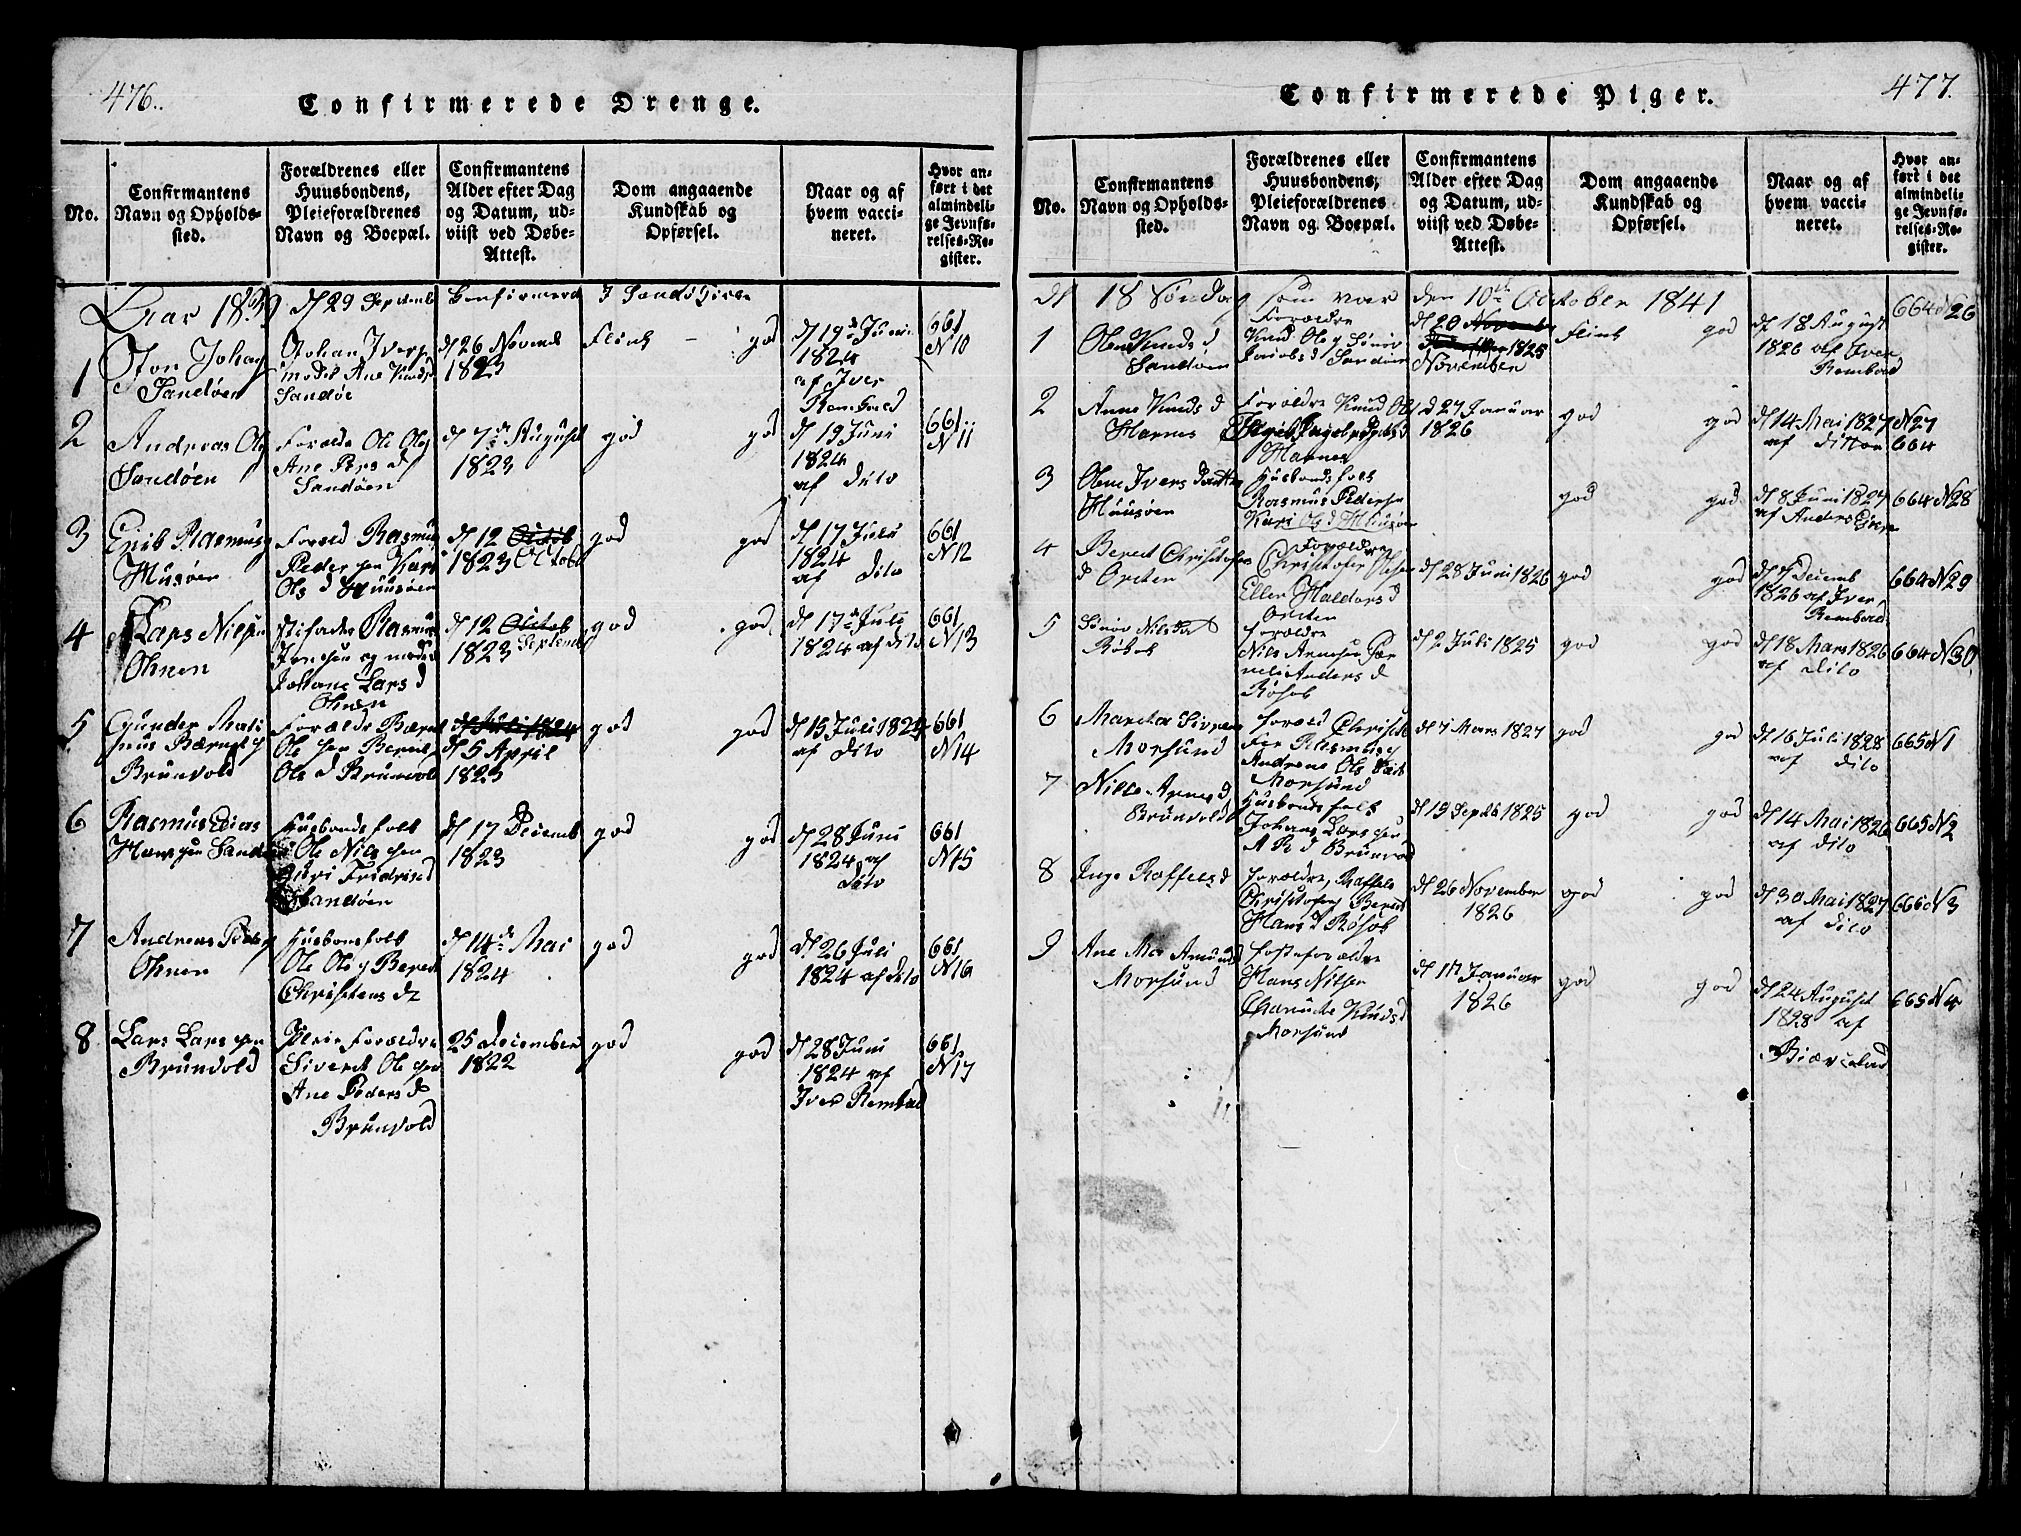 476.
Confirmerede Drenge.
No.
Confirmantens
Navn og Opholds-
sted.
Forældrenes eller
Huusbondens,
Pleieforældrenes
Navn og Boepæl.
Confirmantens
Alder efter Dag
og Datum, ud-
viist ved Døbe-
Attest.
Dom angaaende
Kundskab og
Opførsel.
Naar og af
hvem vacci-
neret.
Hvor an-
ført i det
almindeli-
ge Jevnfø-
relses-Re-
gister.
d 29 Septemb Confirmered I Sandø
1
Johan
Sandøen
Johan Ivers
moder Ane Knuds
Sandøe
d 26 Novemb
1823
Flink - god
d 19 Juni
1824
af Iver
Rembold
661
N10
2
Andreas Ols
Sandøen
Foræld Ole Ols
Ane Pers d
Sandøen
d 7 August
1823
god god
d 19 Juni
1824
af dito
661
N 11
3
Erik Rasmus
Husøen
Foræld Rasmus
Pedersen Kari
Ols d Huusøen
d 12 Octob
1823 Octobr
god god
d 17 Juli
1824
af dito
661
N12
4
Lars Nilsen
Ohnen
Stifader Rasmus
Johane Lars d
Ohnen
d 12 Octob
1823 Septemb
god god
d 17 Juli
1824 af dito
661
N13
5
Gunder
Brunvold
Forældr Bærnt
Olsen Beret
Ols d Brunvold
d Juli 1824
d 5 April
1823
god god
d 15 Juli 1824
af dito
661
N14
6
Rasmus
Hanssen Sandøen
Husbondsfolk
Ole Nilssen
Guri Fredriks d
Sandøen
d 17 Decemb
1823
god god
d 28 Juni
1824 af
dito
661
N15
7
Andreas Peders
Ohnen
Husbonsfolk
Ole Ols Beret
Christens d
d 14 Mai
1824
god god
d 26 Juli
1824 af dito
661
N16
8
Lars Larssen
Brunvold
Pleie Forældre
Sivert Olssen
Ane Peders d
Brunvold
25 December
1822
god god
d 28 Juni
1824 af
Iver Rembold
661
N17
Confirmerede Piger.
477.
No.
Confirmantens
Navn og Opholds-
sted.
Forældrenes eller
Huusbondens,
Pleieforældrenes
Navn og Boepæl.
Confirmantens
Alder efter Dag
og Datum, ud-
viist ved Døbe-
Attest.
Dom angaaende
Kundskab og
Opførsel.
Naar og af
hvem vacci-
neret.
Hvor an-
ført i det
almindeli-
ge Jevnfø-
relses-Re-
gister.
d 18 Søndag som var den 10de October 1841
1
Knuds d
Sandøen
Forældre
Knud Ols
Jacobs d Sandøen
d 20
1825
November
Flink god
d 18 August
1826 af Iver
Rembold
664 N26
2
Anne Knuds d
Harnes
Forældre Knud Ols
Harnes
d 27 Januar
1826
god god
d 14 Mai 1827
af ditto
N27
664
3
Olene Ivers Datter
Huusøen
Husbondsfolk
Rasmus Pedersen
Kari Ols d Huusøen
god god
d 8 Juni 1827
af Anders
664 N28
4
Beret Christofers
d Orten
Forældre
Christofer Olsen
Ellen Haldors d
Orten
d 28 Juni 1826
god god
d 7 Decemb
1826 af Iver
Rembold
664 N29
5
Nils Dat
Røsok
Forældre
Nils Arnesen
Anders d
Røsok
d 2 Juli 1825
god god
d 18 Mars 1826
af dito
664 N30
6
Morsund
Foræld Christo
fer Rasmus
Andrene Ols Dat
Morsund
d 7 Mars 1827
god god
d 16 Juli 1828
af dito
665 N1
7
Arnes d
Brunvold
Husbondsfolk
Johans Larssen
A R d Brunvold
d 19 Septb 1825
god god
d 14 Mai 1826
af dito
665 N2
8
Inge Raffels d
Forældre, Raffel
Christofers Beret
Hans d Røsok
d 26 November
1826
god god
d 30 Mai 1827
af dito
N3
9
Ane Amunds d
Morsund
Fosterforældre
Hans Nilsen
Knuds d
Morsund
d 17 Januar
1826
god god
d 24 August
1828 af
665 N4